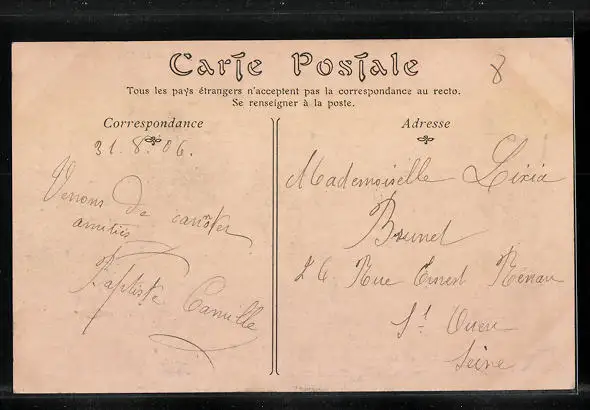 Carte Postale
Tous les pays étrangers n'acceptent pas la correspondance au recto.
Se renseigner à la poste.
Correspondance
31. 8. 06.
Venons de
amitiés
Baptiste Camille
8
Adresse
Mademoiselle Lixia
Brunel
26 Rue Ernest Renan
St Ouen
Seine